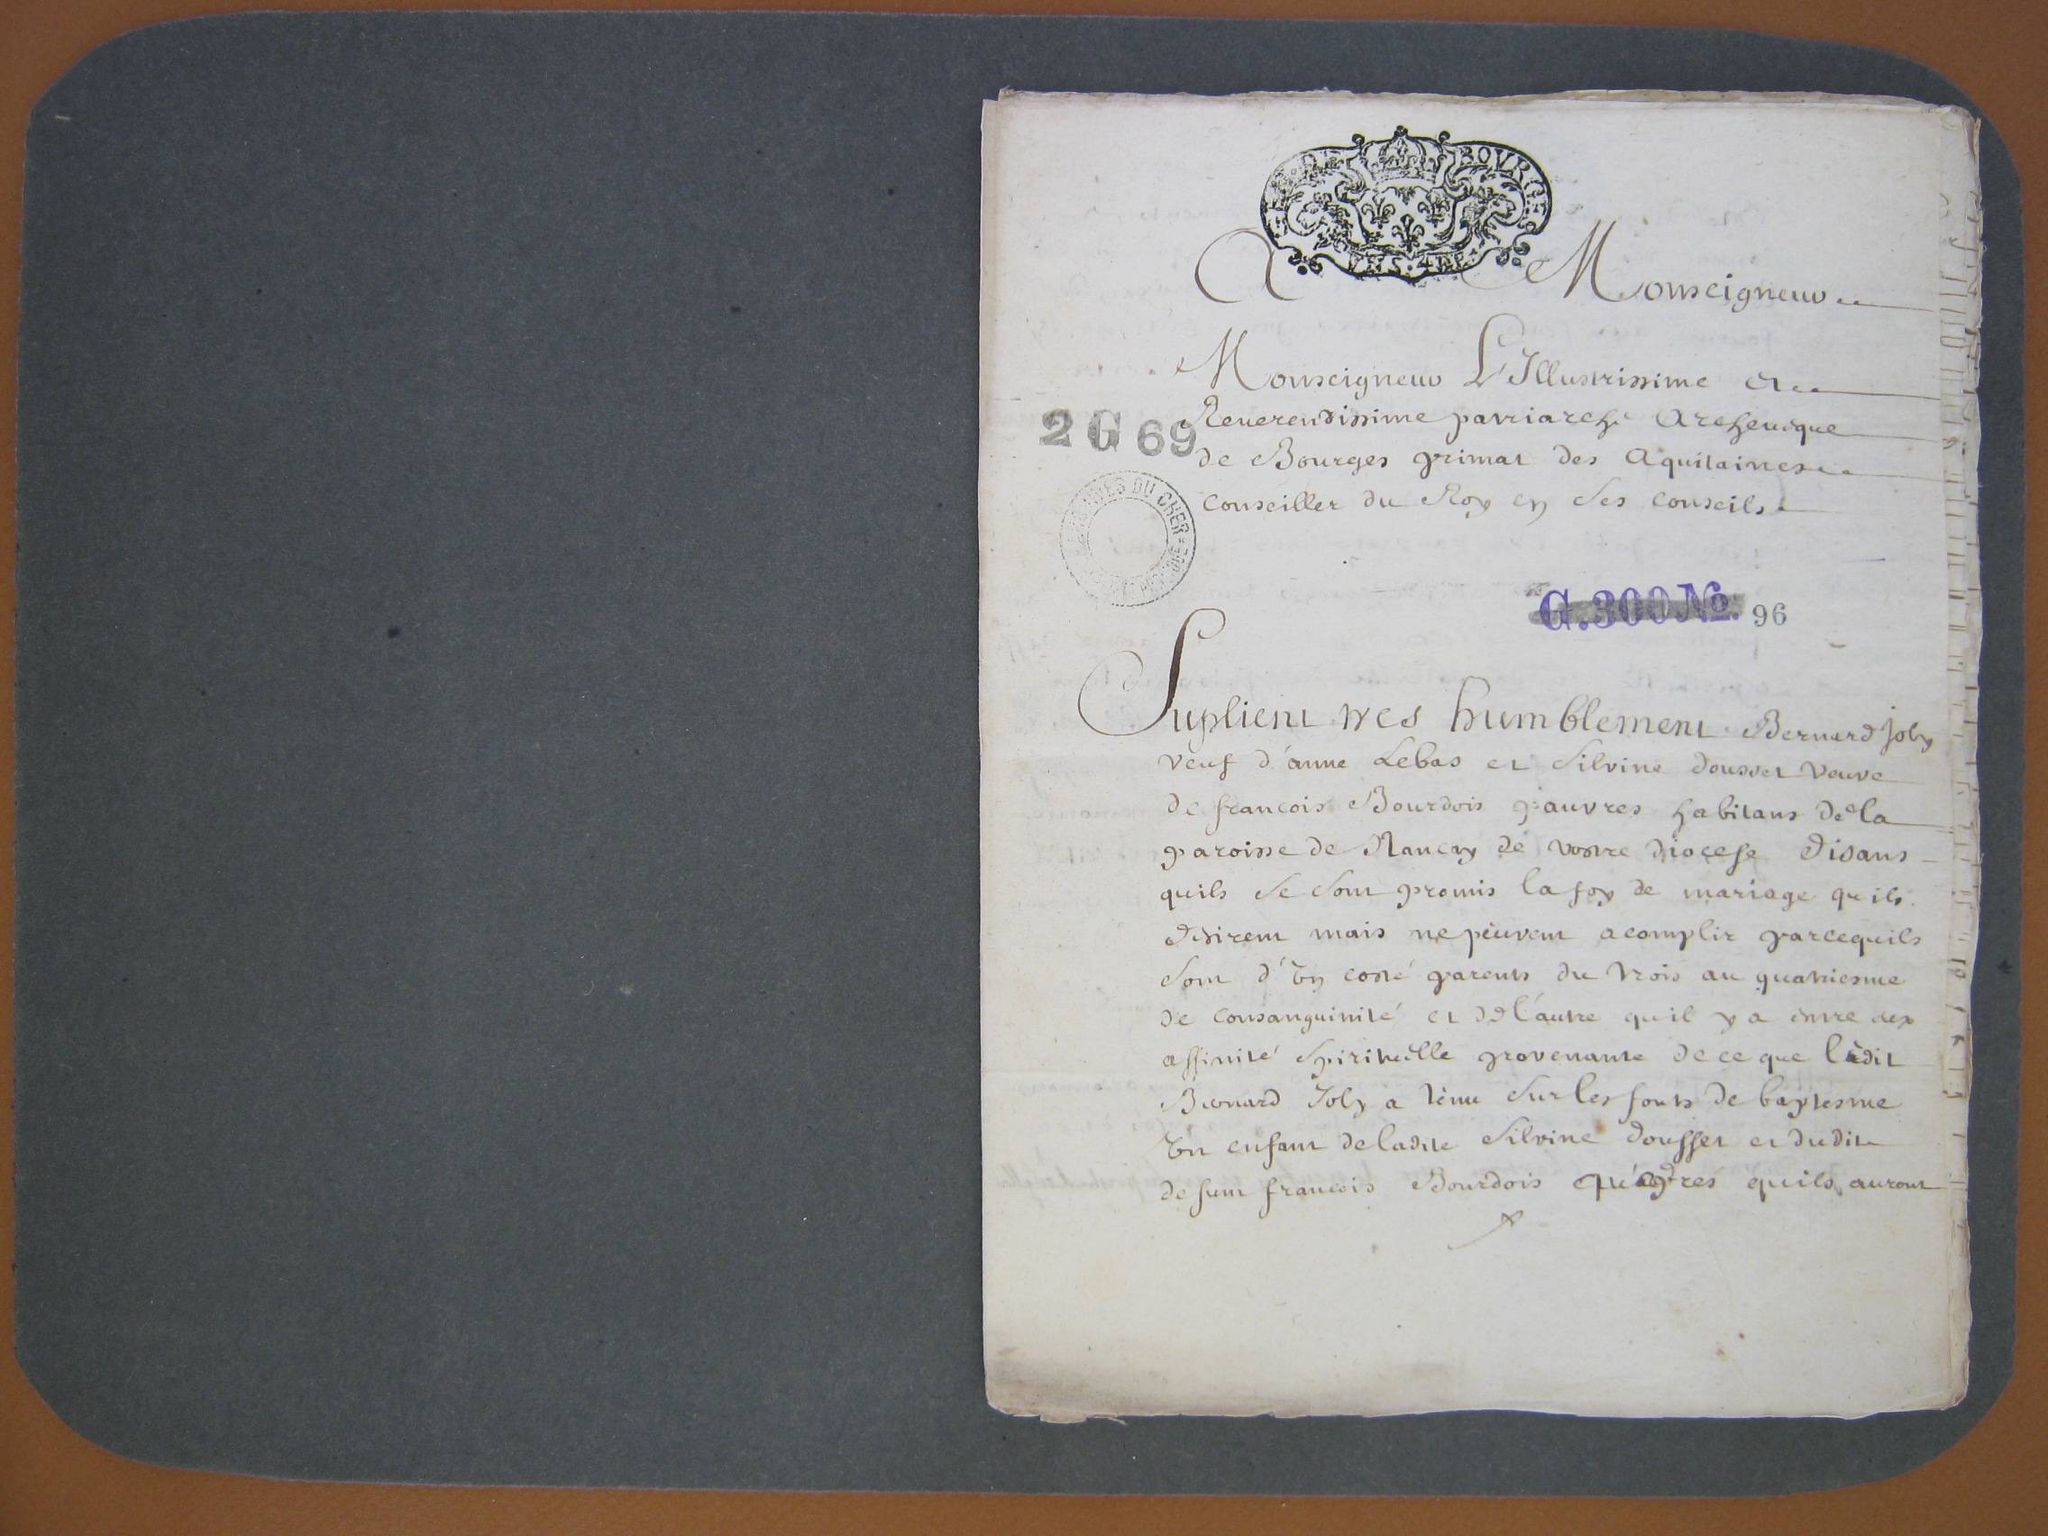 BOVRGES
A Monseigneur
Monseigneur L'Illustrissime et
Reverendissime patriarche Archevesque
2 G 69
de Bourges primat des Aquitaines
conseiller du Roy en ses conseils
ARCHIVES DU CHER
G.300 No. 96
Suplient tres humblement Bernard Joly
veuf d'anne Lebas et Silvine dousset veuve
de francois Bourdois pauvres habitans de la
paroisse de Nancay de vostre diocese disans
quils se sont promis la foy de mariage quils
desirent mais ne peuvent acomplir parcequils
sont d'un costé parents du trois au quatriesme
de consanguinité et de l'autre quil y a entre eux
affinité spirituelle provenante de ce que ledit
Bernard Joly a tenu sur les fonts de baptesme
un enfant de ladite Silvine dousset et dudit
defunt francois Bourdois qu'aprés quils auront